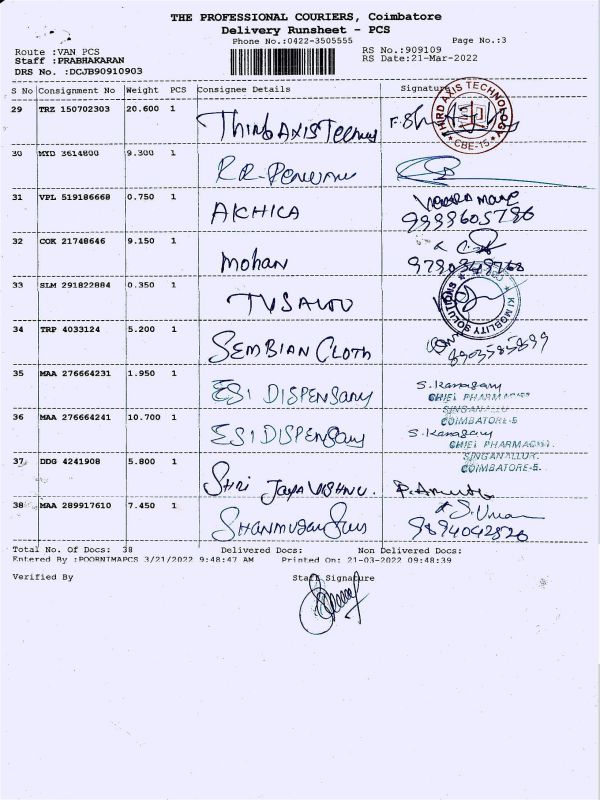 THE PROFESSIONAL COURIERS, Coimbatore
Delivery Runsheet - PCS
Phone No.:0422-3505555 Page No.:3
Route :VAN PCS RS No.:909109
Staff :PRABHAKARAN RS Date:21-Mar-2022
DRS No. :DCJB90910903
S No Consignment No Weight PCS Consignee Details Signature
29 TRZ 150702303 20.600 1
THIRD AXIS TECHNOLOGY
CBE-15
30 MYD 3614800 9.300 1
31 VPL 519186668 0.750 1
AKHICA
32 COK 21748646 9.150 1
Mohan
33 SLM 291822884 0.350 1
KI MOBILITY SOLUTIONS
34 TRP 4033124 5.200 1
SEMBIAN CLOTH
8903585899
35 MAA 276664231 1.950 1
ESI DISPENSARY
CHIEF PHARMACIST
SINGANALLU
COIMBATORE-5
36 MAA 276664241 10.700 1
ESI DISPENSARY
CHIEF PHARMACIST.
SINGANALLUR.
COIMBATORE-5.
37 DDG 4241908 5.800 1
SHRI JAYA VISHNU.
38 MAA 289917610 7.450 1
9894042826
Total No. Of Docs: 38 Delivered Docs: Non Delivered Docs:
Entered By :POORNIMAPCS 3/21/2022 9:48:47 AM Printed On: 21-03-2022 09:48:39
Verified By Staff Signature